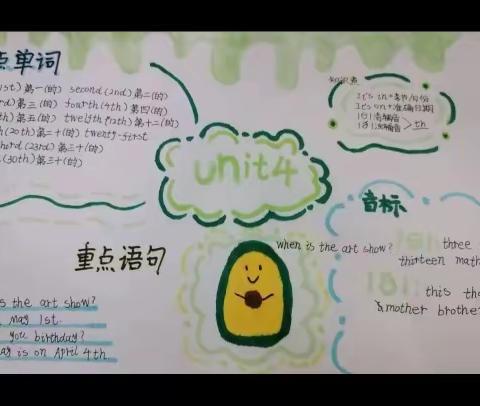 点单词
1st) 第一(的) second (2nd) 第二(的)
rd) 第三(的) fourth (4th) 第四(的)
th) 第五(的) twelfth (12th) 第十二(的)
(20th) 第二十(的) twenty-first
third (23rd) 第三十(的)
(30th) 第三十(的)
知识点
It's in+季节/月份
It's on+准确日期
/θ/清辅音
/ð/浊辅音 > th
unit4
音标
when is the art show?
three
thirteen math
this tha
mother brother
重点语句
s the art show?
May 1st.
you birthday?
ay is on April 4th.